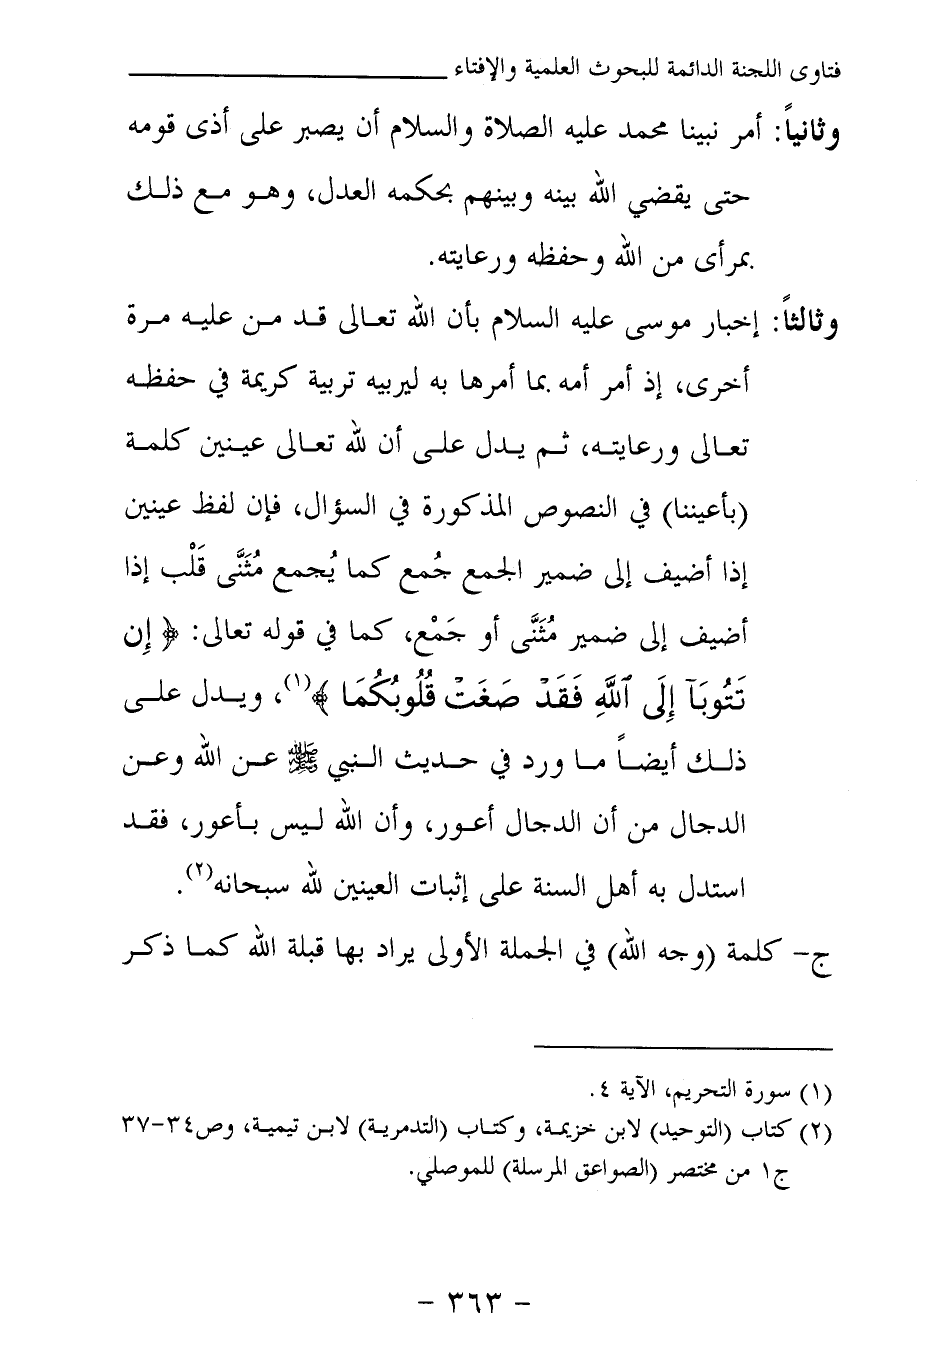 فتاوى اللجنة الدائمة للبحوث العلمية والإفتاء
وثانياً: أمر نبينا محمد عليه الصلاة والسلام أن يصبر على أذى قومه
حتى يقضي الله بينه وبينهم بحكمه العدل، وهو مع ذلك
بمرأى من الله وحفظه ورعايته.
وثالثاً: إخبار موسى عليه السلام بأن الله تعالى قد من عليه مرة
أخرى، إذ أمر أمه بما أمرها به ليربيه تربية كريمة في حفظه
تعالى ورعايته، ثم يدل على أن لله تعالى عينين كلمة
(بأعيننا) في النصوص المذكورة في السؤال، فإن لفظ عينين
إذا أضيف إلى ضمير الجمع جُمع كما يُجمع مُثَنَّى قَلْب إذا
أضيف إلى ضمير مُثَنَّى أو جَمْع، كما في قوله تعالى: ﴿ إِن
تَتُوبَآ إِلَى ٱللَّهِ فَقَدْ صَغَتْ قُلُوبُكُمَا ﴾(١)، ويدل على
ذلك أيضاً ما ورد في حديث النبي ﷺ عن الله وعن
الدجال من أن الدجال أعور، وأن الله ليس بأعور، فقد
استدل به أهل السنة على إثبات العينين لله سبحانه(٢).
ج- كلمة (وجه الله) في الجملة الأولى يراد بها قبلة الله كما ذكر
(١) سورة التحريم، الآية ٤.
(٢) كتاب (التوحيد) لابن خزيمة، وكتاب (التدمرية) لابن تيمية، وص٣٤-٣٧
ج١ من مختصر (الصواعق المرسلة) للموصلي.
- ٣٦٣ -